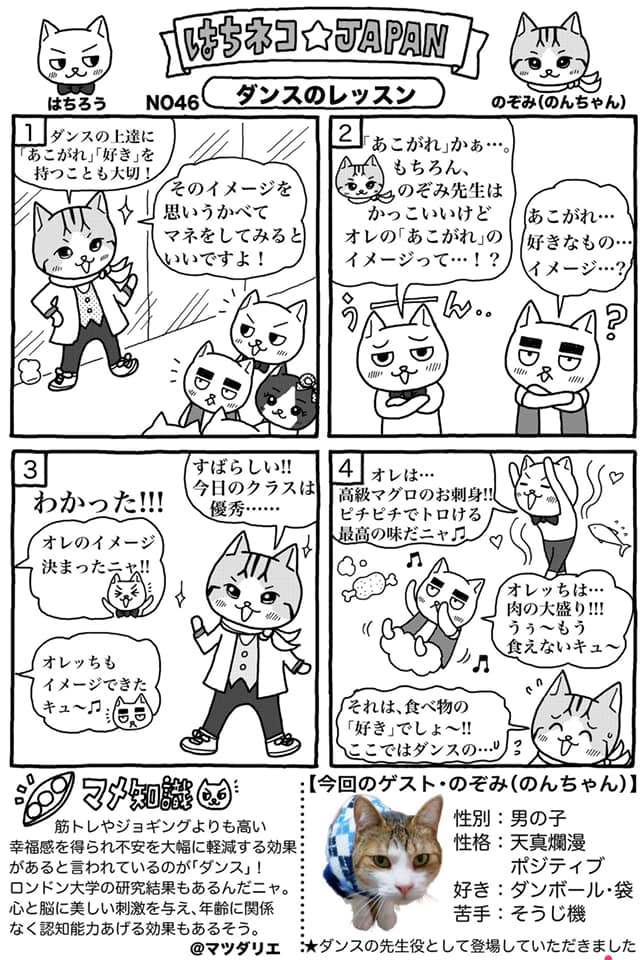 はちネコ☆JAPAN
はちろう
NO46
ダンスのレッスン
のぞみ(のんちゃん)
1
ダンスの上達に
「あこがれ」「好き」を
持つことも大切!
そのイメージを
思いうかべて
マネをしてみると
いいですよ!
2
「あこがれ」かぁ…。
もちろん、
のぞみ先生は
かっこいいけど
オレの「あこがれ」の
イメージって…!?
あこがれ…
好きなもの…
イメージ…?
う〜ん..
?
3
わかった!!!
すばらしい!!
今日のクラスは
優秀……
オレのイメージ
決まったニャ!!
オレっちも
イメージできた
キュ〜♫
4
オレは…
高級マグロのお刺身!!
ピチピチでトロける
最高の味だニャ♫
オレっちは…
肉の大盛り!!!
うぅ〜もう
食えないキュ〜
それは、食べ物の
「好き」でしょ〜!!
ここではダンスの…
マメ知識
筋トレやジョギングよりも高い
幸福感を得られ不安を大幅に軽減する効果
があると言われているのが「ダンス」!
ロンドン大学の研究結果もあるんだニャ。
心と脳に美しい刺激を与え、年齢に関係
なく認知能力あげる効果もあるそう。
@マツダリエ
【今回のゲスト・のぞみ(のんちゃん)】
性別:男の子
性格:天真爛漫
ポジティブ
好き:ダンボール・袋
苦手:そうじ機
★ダンスの先生役として登場していただきました